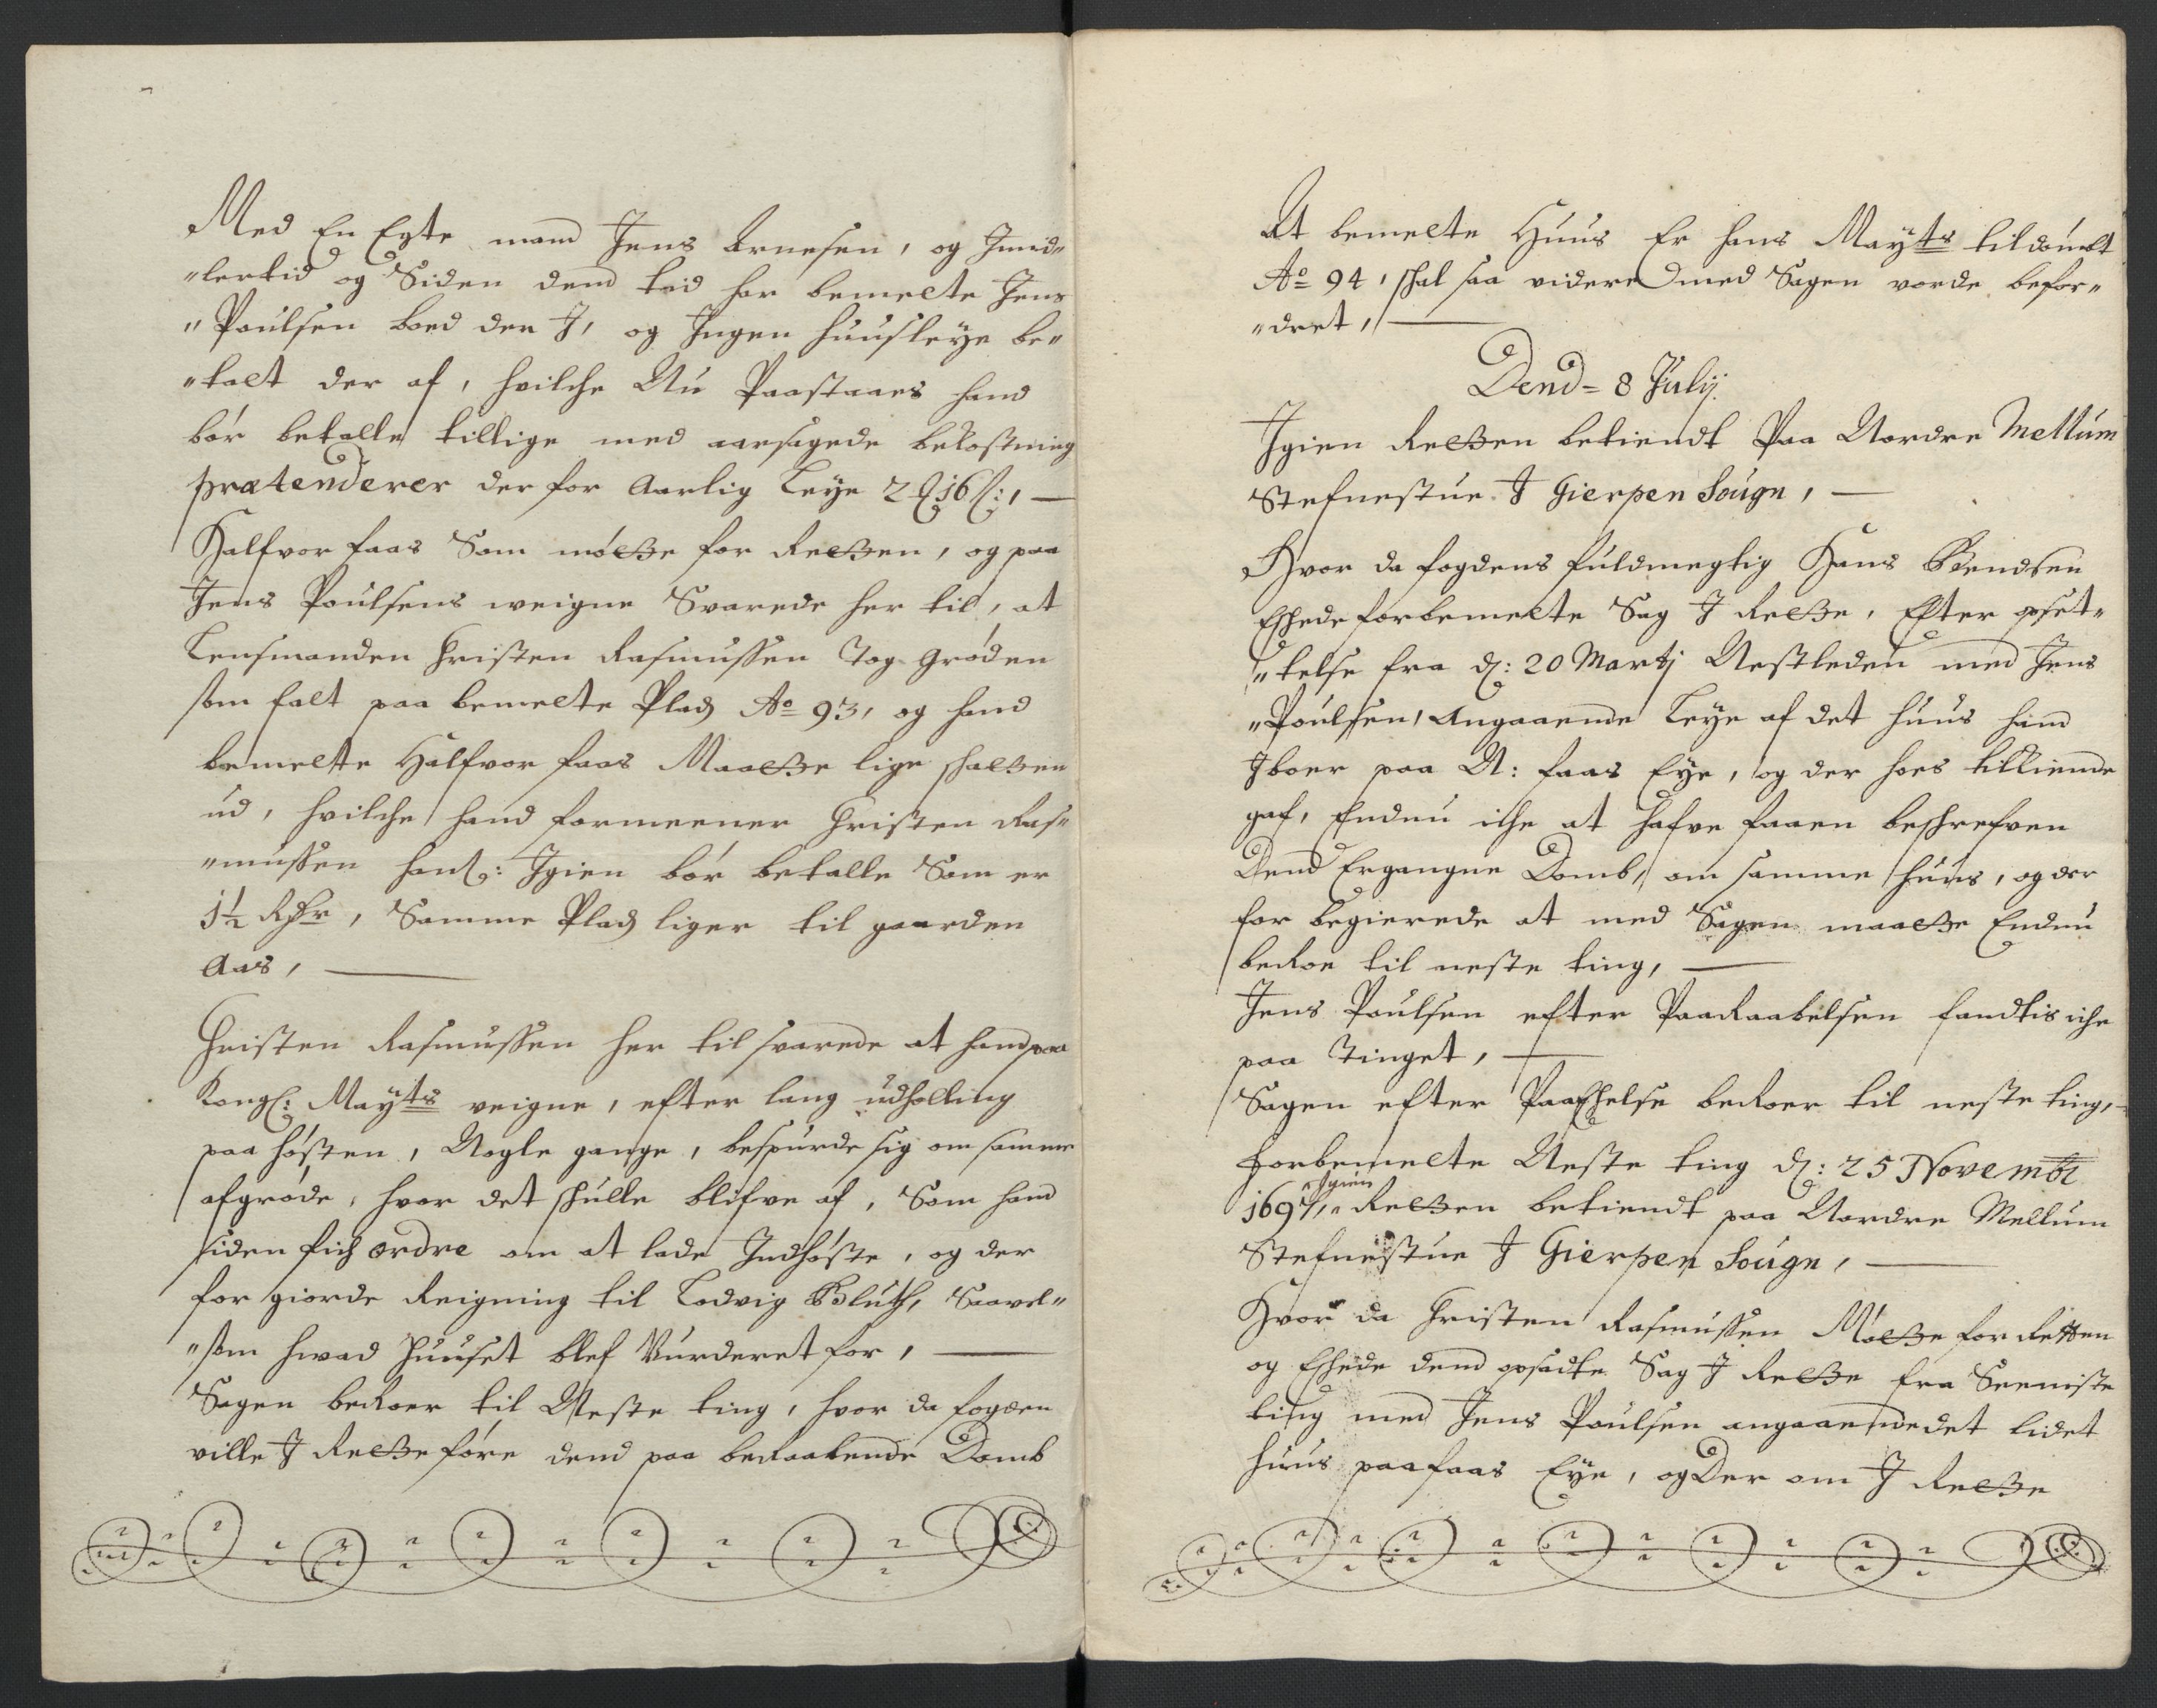 Med En Egte mand Jens Arnesen, og Jmid„
„lertid og Siden dend tid har bemelte Jens
„Poulsen boed der J, og Jngen huusleye be„
„talt der af, hvilche Nu Paastaaes hand
bør betalle tillige med aarsagede bekostning
prætenderer der for Aarlig Leye 2 16 ,
Halfvor Faas Som møtte for Retten, og paa
Jens Poulsens weigne Svarede her til, at
Lensmanden Christen Rasmussen Tog Grøden
som falt paa bemelte Plads Ao 93, og hand
bemelte Halfvor Faas Maatte lige schatten
ud, hvilche hand formeener Christen Ras„
„mussen hans: Jgien bør betalle Som er
1½ Rdr, Samme Plads liger til gaarden
Aas,
Christen Rasmussen her til svarede at hand paa
Kongl: Mayts veigne, efter lang udholling
paa høsten, Nogle gange, bespurde sig om samme
afgrøde, hvor det schulle blifve af, Som hand
siden fich ordre om at lade Jndhøste, og der
for giorde Reigning til Lodvig Bluth, Saavel„
„som hwad Huuset blef Vurderet for,
Sagen beroer til Neste ting, hvor da fogden
ville J Rette føre dend paa beraabende Domb
At bemelte Huus Er hans Mayts tildømt
Ao 94, schal saa videre med Sagen vorde befor„
„dret,
Dend 8 Julij
Jgien Retten betiendt Paa Nordre Mellum
Stefnestue J Gierpen Sougn,
Hvor da fogdens fuldmegtig Hans Bendsen
Eschede forbemelte Sag J Rette, Efter opset„
„telse fra d: 20 Martj Nestleden med Jens
„Poulsen, Angaaende Leye af det huus hand
Jboer paa N: Faas Eye, og der hoes tilkiende
gaf, Endnu iche at hafve faaen beschrefven
Dend Ergangne Domb, om samme huus, og der
for begierede at med Sagen maatte Endnu
beroe til neste ting,
Jens Poulsen efter Paaraabelsen fandtis iche
paa Tinget,
Sagen efter Paaeschelse beroer til neste ting,
Forbemelte Neste ting d: 25 Novembr
1697, Jgien Retten betiendt paa Nordre Mellum
Stefnestue J Gierpen Sougn,
Hvor da Christen Rasmussen Møtte for Retten
og Eschede dend opsadte Sag J Rette fra Seeniste
ting med Jens Poulsen angaaende det lidet
huus paa Faas Eye, og Der om J Rette